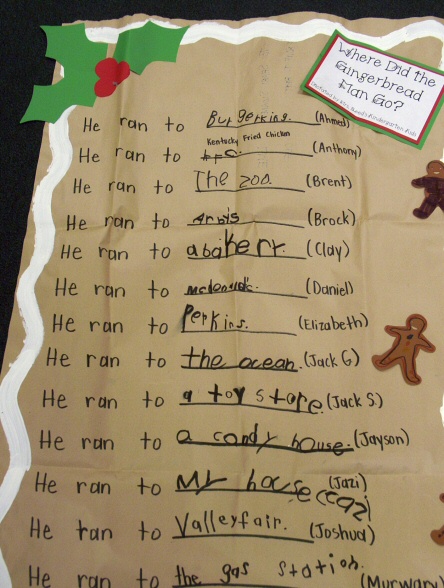 Where Did the
Gingerbread
Man Go?
He ran to Burgerking. (Ahmed)
Kentucky Fried Chicken
He ran to KFC. (Anthony)
He ran to The zoo. (Brent)
He ran to Arbis (Brock)
He ran to a bakery. (Clay)
He ran to mcdonald's. (Daniel)
He ran to Perkins. (Elizabeth)
He ran to the ocean. (Jack G)
He ran to a toy store. (Jack S.)
He ran to a candy house. (Jayson)
He ran to My house (Jazi)
(cazi
He ran to Valleyfair. (Joshua)
He ran to the gas station.
(Murwan)